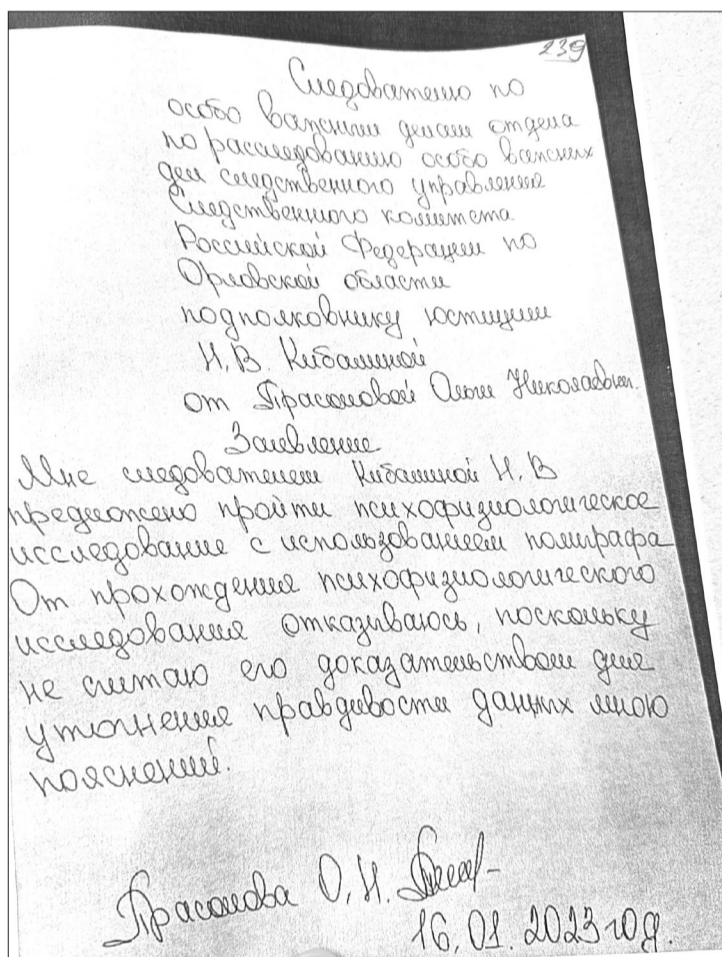 239
Следователю по
особо важным делам отдела
по расследованию особо важных
дел следственного управления
Следственного комитета
Российской Федерации по
Орловской области
подполковнику юстиции
Н.В. Кибалиной
от Прасоловой Ольги Николаевны.
Заявление
Мне следователем Кибалиной Н.В
предложено пройти психофизиологическое
исследование с использованием полиграфа
От прохождения психофизиологического
исследования отказываюсь, поскольку
не считаю его доказательством для
уточнения правдивости данных мною
пояснений.
Прасолова О.Н.
16.01.2023 год.